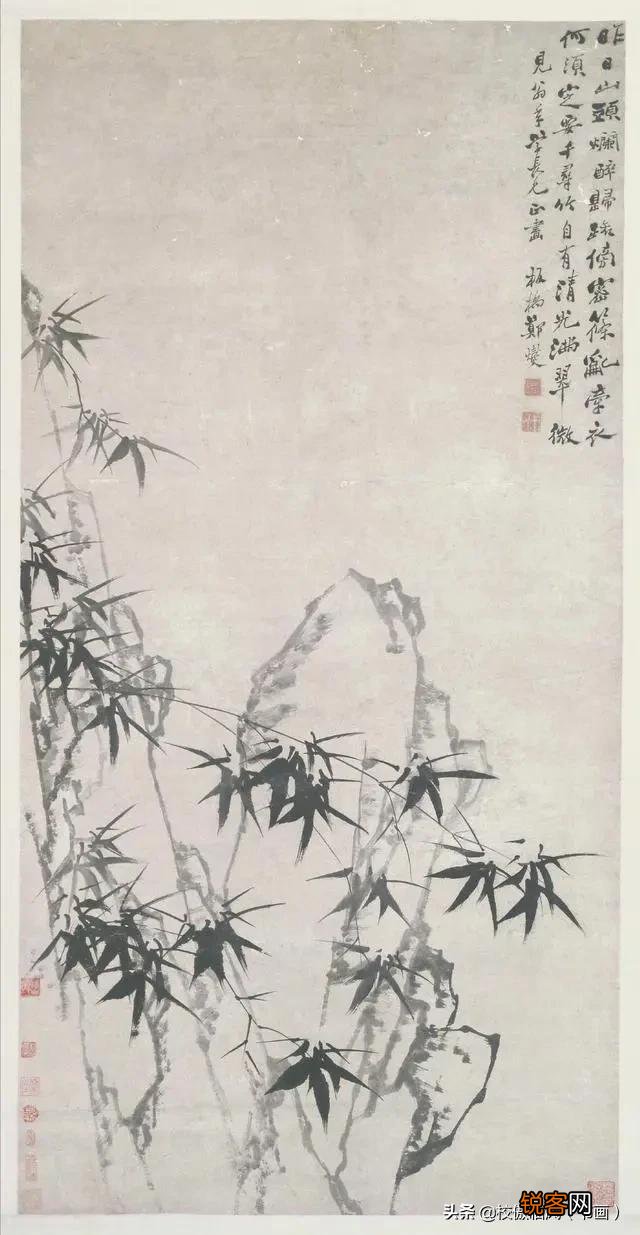 昨日山頭爛醉歸路傍密篠亂牽衣
何須定要千尋竹自有清光滿翠微
見翁年學長兄正畫 板橋鄭燮
锐客网
头条 @校傲 画）